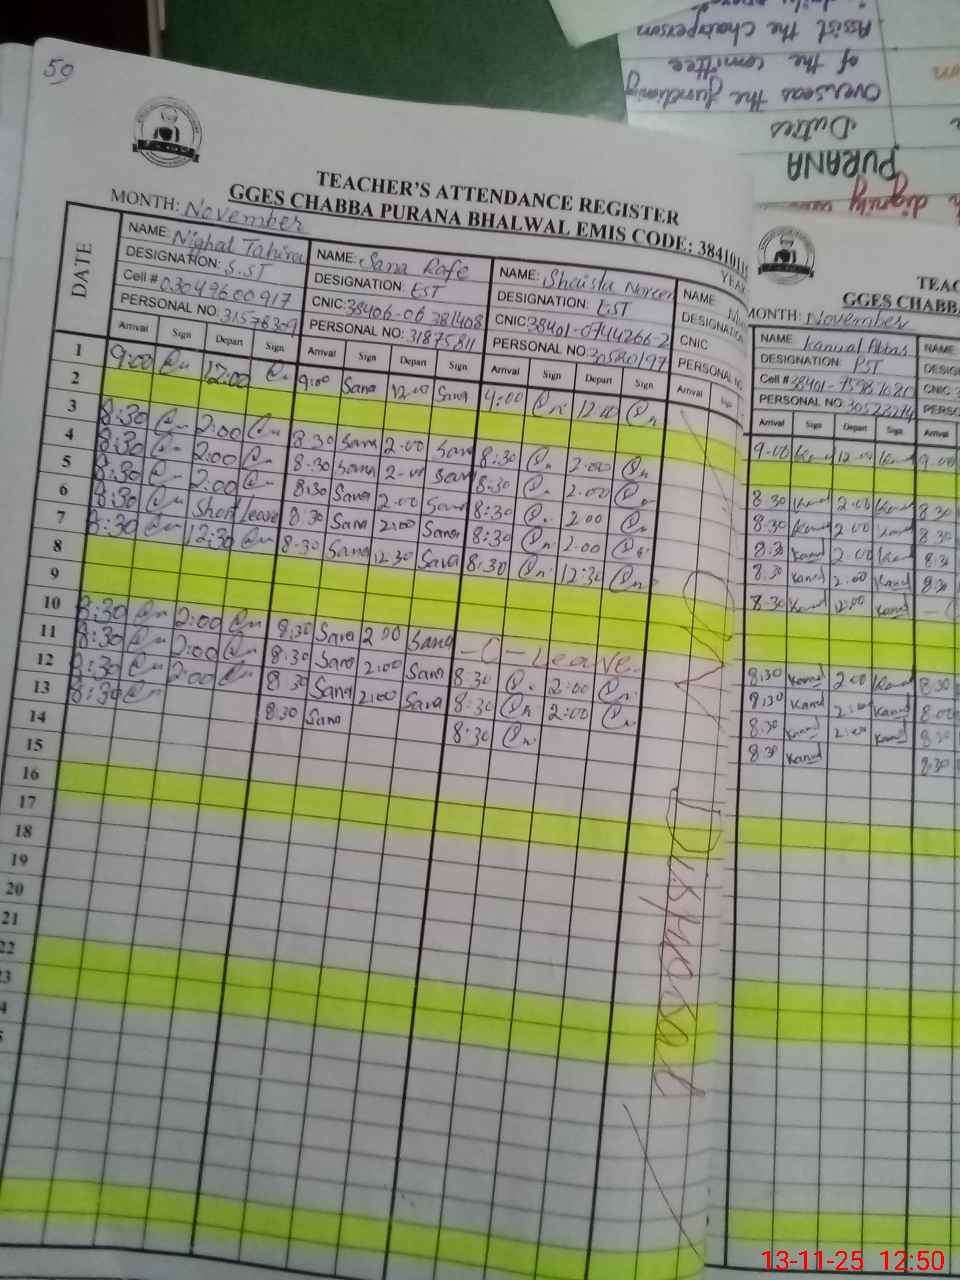 59
TEACHER'S ATTENDANCE REGISTER
GGES CHABBA PURANA BHALWAL EMIS CODE: 3841011
MONTH: November
YEAR
DATE
NAME: Nighat Tahira
DESIGNATION: S.ST
Cell # 03049600917
PERSONAL NO: 31578309
Arrival Sign Depart Sign
NAME: Sana Rafe
DESIGNATION: EST
CNIC: 38406-06 381408
PERSONAL NO: 31875811
Arrival Sign Depart Sign
NAME: Shaista Noreen
DESIGNATION: EST
CNIC: 38401-0714266-2
PERSONAL NO: 30580197
Arrival Sign Depart Sign
NAME
DESIGNATION
CNIC
PERSONAL N
Arrival
1 9:00 12:00 9:00 Sana 12:00 Sana 9:00 12:00
2
3 8:30 2:00 8:30 Sana 2:00 Sana 8:30 2:00
4 8:30 2:00 8:30 Sana 2:00 Sana 8:30 2:00
5 8:30 2:00 8:30 Sana 2:00 Sana 8:30 2:00
6 8:30 Short leave 8:30 Sana 2:00 Sana 8:30 2:00
7 8:30 12:30 8:30 Sana 12:30 Sana 8:30 12:30
8
9
10 8:30 2:00 8:30 Sana 2:00 Sana - C - Leave
11 8:30 2:00 8:30 Sana 2:00 Sana 8:30 2:00
12 8:30 2:00 8:30 Sana 2:00 Sana 8:30 2:00
13 8:30 8:30 Sana 8:30
14
15
16
17
18
19
20
21
22
23
ON Disposal
TEAC
GGES CHABB
MONTH: November
NAME: Kanwal Abbas
DESIGNATION: PST
Cell # 38401-
PERSONAL NO:
Arrival Sign Depart Sign
NAME
DESIG
CNIC
PERSO
Arrival
9:00 Kanwal 12:00 Kanwal 9:00
8:30 Kanwal 2:00 Kanwal 8:30
8:30 Kanwal 2:00 Kanwal 8:30
8:30 Kanwal 2:00 Kanwal 8:30
8:30 Kanwal 2:00 Kanwal 8:30
8:30 Kanwal 12:00 Kanwal
8:30 Kanwal 2:00 Kanwal 8:30
8:30 Kanwal 2:00 Kanwal 8:00
8:30 Kanwal 2:00 Kanwal 8:30
8:30 Kanwal 8:30
PURANA
Duties
Overseas the functioning
of the comittee
Assist the Chairperson
dignity
13-11-25 12:50